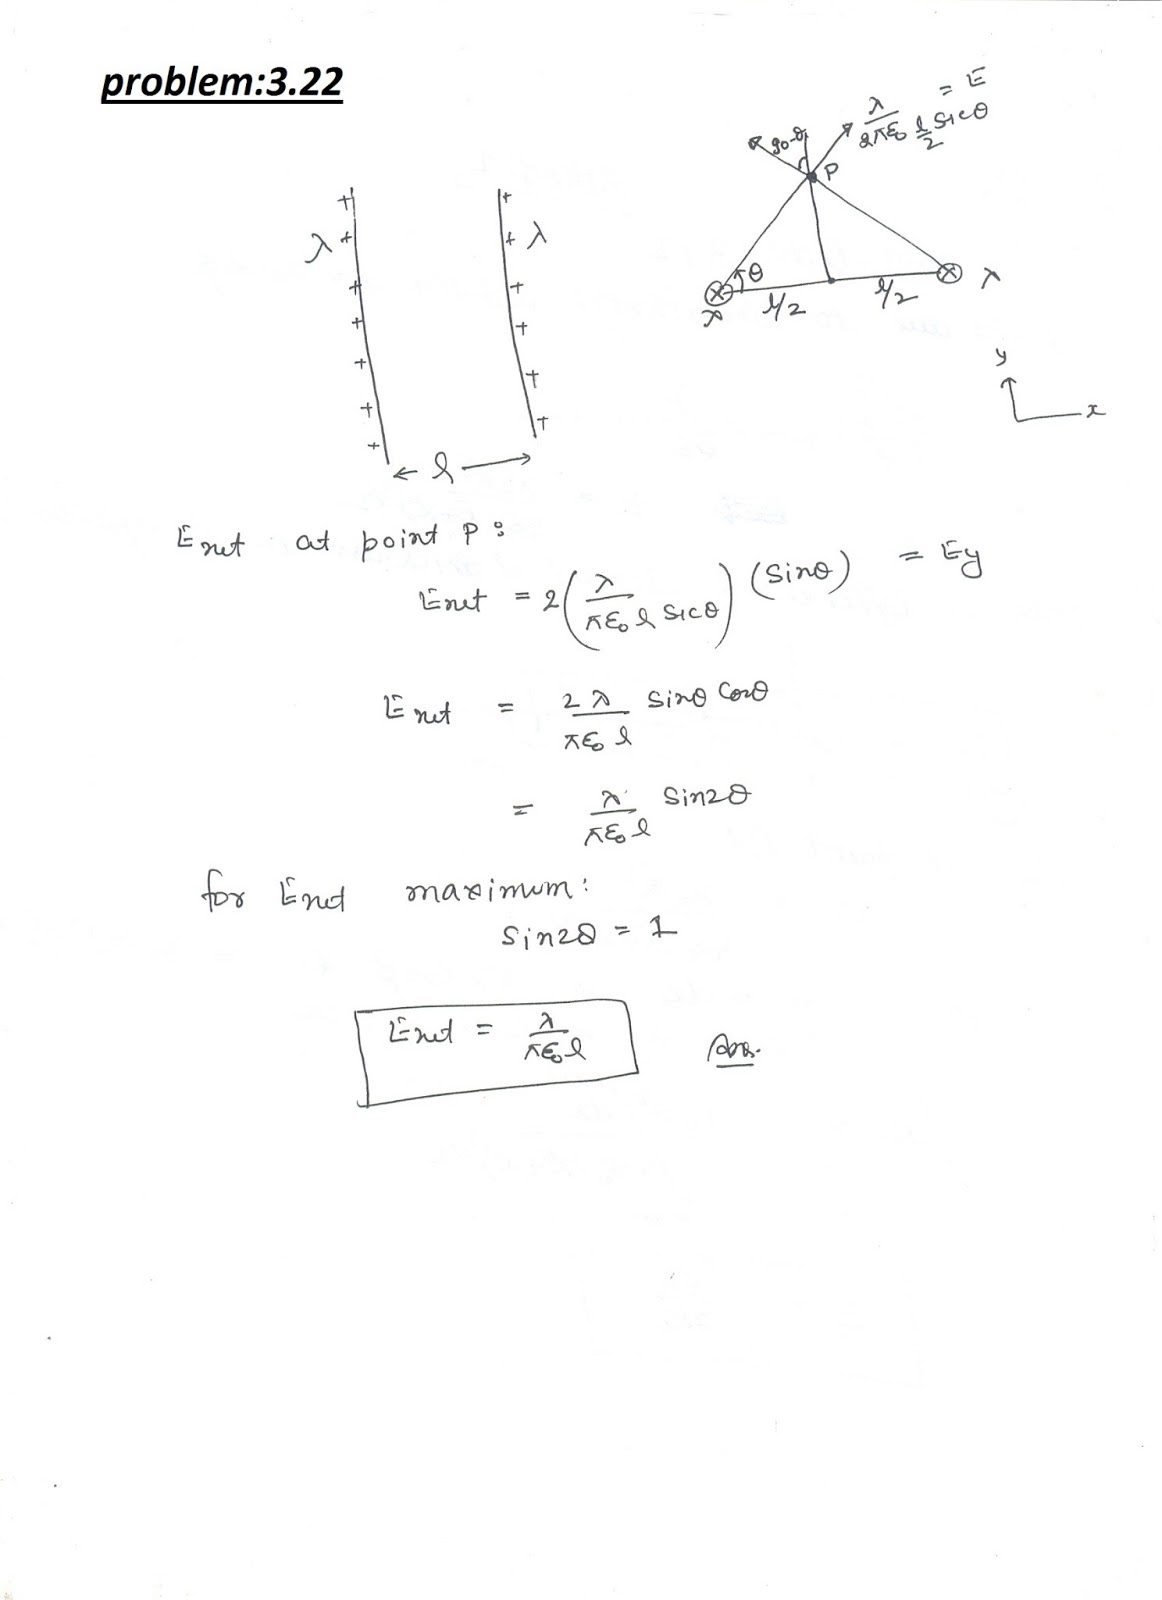 problem:3.22
= E
λ/2πε₀ l/2 sicθ
90-θ
P
θ
λ
l/2
l/2
λ
y
x
+ + + + + + +
λ
+ + + + + +
λ
l
Enet at point P:
Enet = 2(λ/πε₀ l sicθ)(sinθ) = Ey
Enet = 2λ/πε₀ l sinθ cosθ
= λ/πε₀ l sin2θ
for Enet maximum:
sin2θ = 1
Enet = λ/πε₀ l Ans.